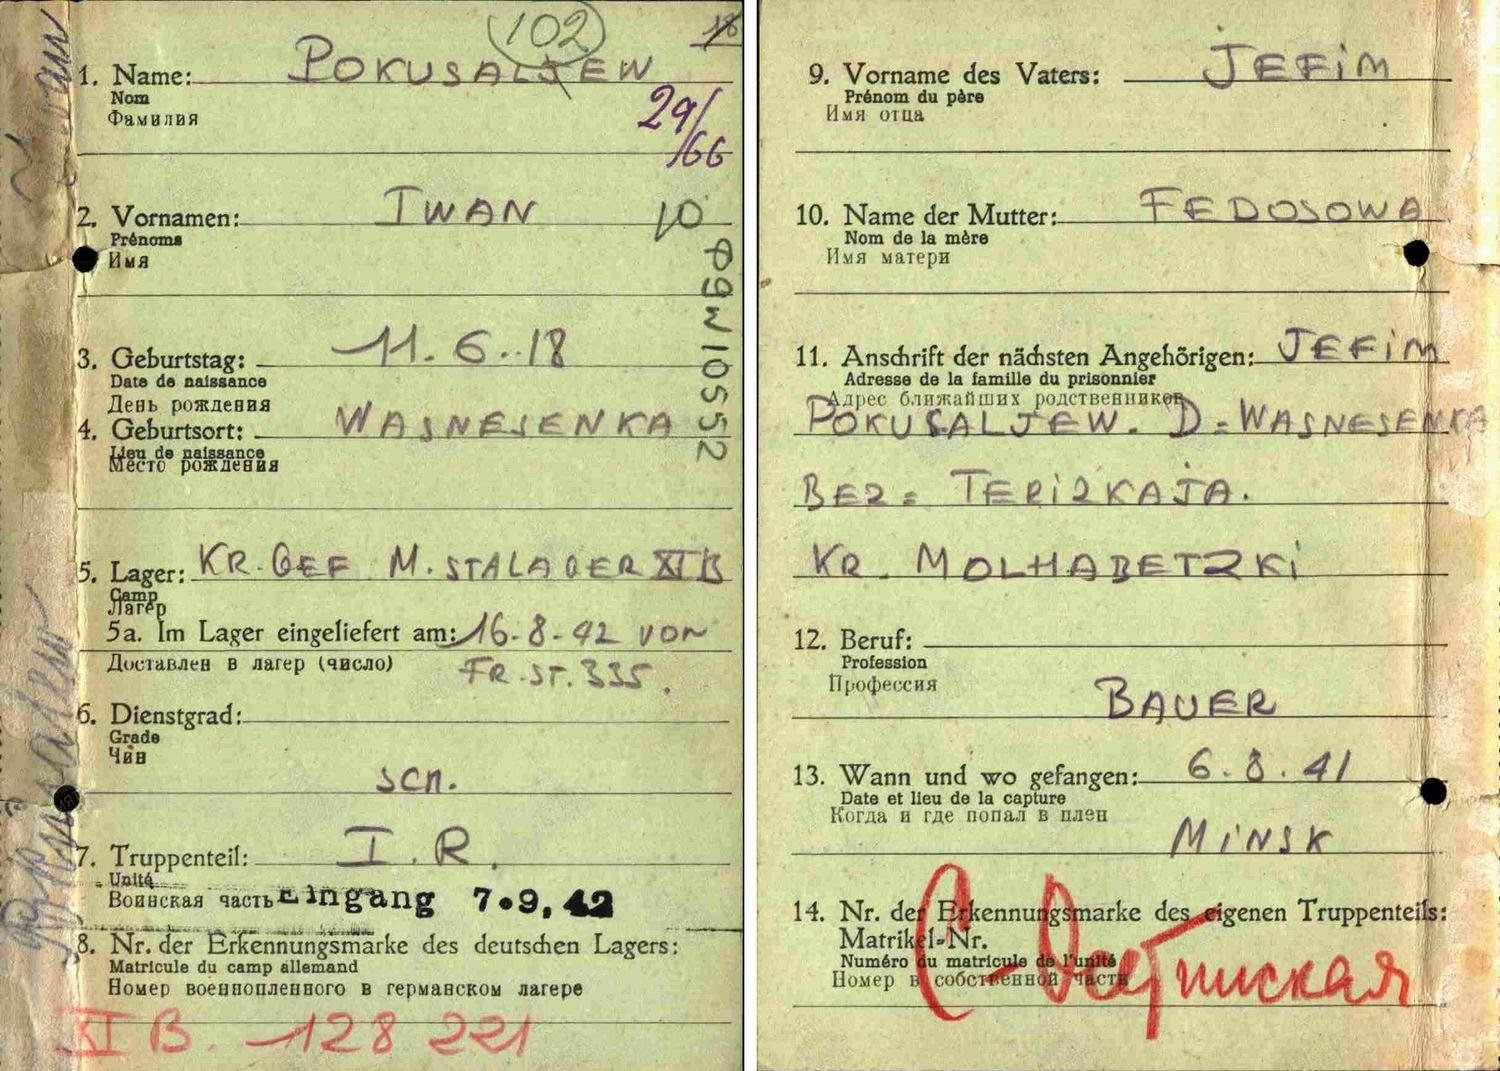 102
18
1. Name: POKUSALJEW
Nom
Фамилия
29/66
2. Vornamen: IWAN 10
Prénoms
Имя
3. Geburtstag: 11.6.18
Date de naissance
День рождения
4. Geburtsort: WASNESENKA
Lieu de naissance
Место рождения
5. Lager: KR. GEF M. STALAGER XI B
Camp
Лагерь
5a. Im Lager eingeliefert am: 16-8-42 VON
Доставлен в лагер (число) FR.ST. 335.
6. Dienstgrad:
Grade
Чин
SCH.
7. Truppenteil: I.R.
Unité
Воинская часть Eingang 7.9.42
8. Nr. der Erkennungsmarke des deutschen Lagers:
Matricule du camp allemand
Номер военнопленного в германском лагере
XI B. 128 221
9. Vorname des Vaters: JEFIM
Prénom du père
Имя отца
10. Name der Mutter: FEDOSOWA
Nom de la mère
Имя матери
11. Anschrift der nächsten Angehörigen: JEFIM
Adresse de la famille du prisonnier
Адрес ближайших родственников
POKUSALJEW. D = WASNESENKA
BEZ = TERIZKAJA.
KR. MOLHABETZKI
12. Beruf:
Profession
Профессия
BAUER
13. Wann und wo gefangen: 6.8.41
Date et lieu de la capture
Когда и где попал в плен
MINSK
14. Nr. der Erkennungsmarke des eigenen Truppenteils:
Matrikel-Nr.
Numéro du matricule de l'unité
Номер в собственной части